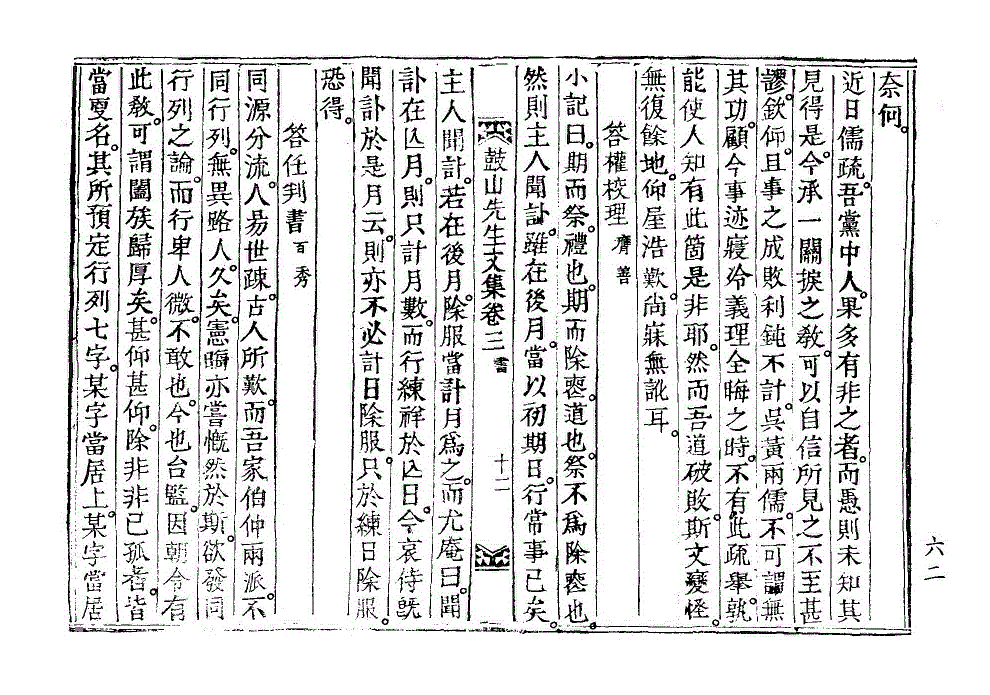 奈何。
近日儒疏。吾黨中人。果多有非之者。而愚則未知其
見得是。今承一關捩之敎。可以自信所見之不至甚
謬。欽仰。且事之成敗利鈍不計。吳黃兩儒。不可謂無
其功。顧今事迹寢冷義理全晦之時。不有此疏擧。孰
能使人知有此箇是非耶。然而吾道破敗。斯文變怪。
無復餘地。仰屋浩歎。尙寐無訛耳。
答權校理 膺善
小記曰。期而祭。禮也。期而除喪。道也。祭不爲除喪也。
然則主人聞訃。雖在後月。當以初期日。行常事已矣。
鼓山先生文集卷三 書 十二
主人聞訃。若在後月。除服當計月爲之。而尤庵曰。聞
訃在亾月。則只計月數。而行練祥於亾日。今哀侍旣
聞訃於是月云。則亦不必計日除服。只於練日除服。
恐得。
答任判書 百秀
同源分流。人易世疎。古人所歎。而吾家伯仲兩派。不
同行列。無異路人。久矣。憲晦亦嘗慨然於斯。欲發同
行列之論。而行卑人微。不敢也。今也台監。因朝令有
此敎。可謂闔族歸厚矣。甚仰甚仰。除非非已孤者。皆
當更名。其所預定行列七字。某字當居上。某字當居
六二